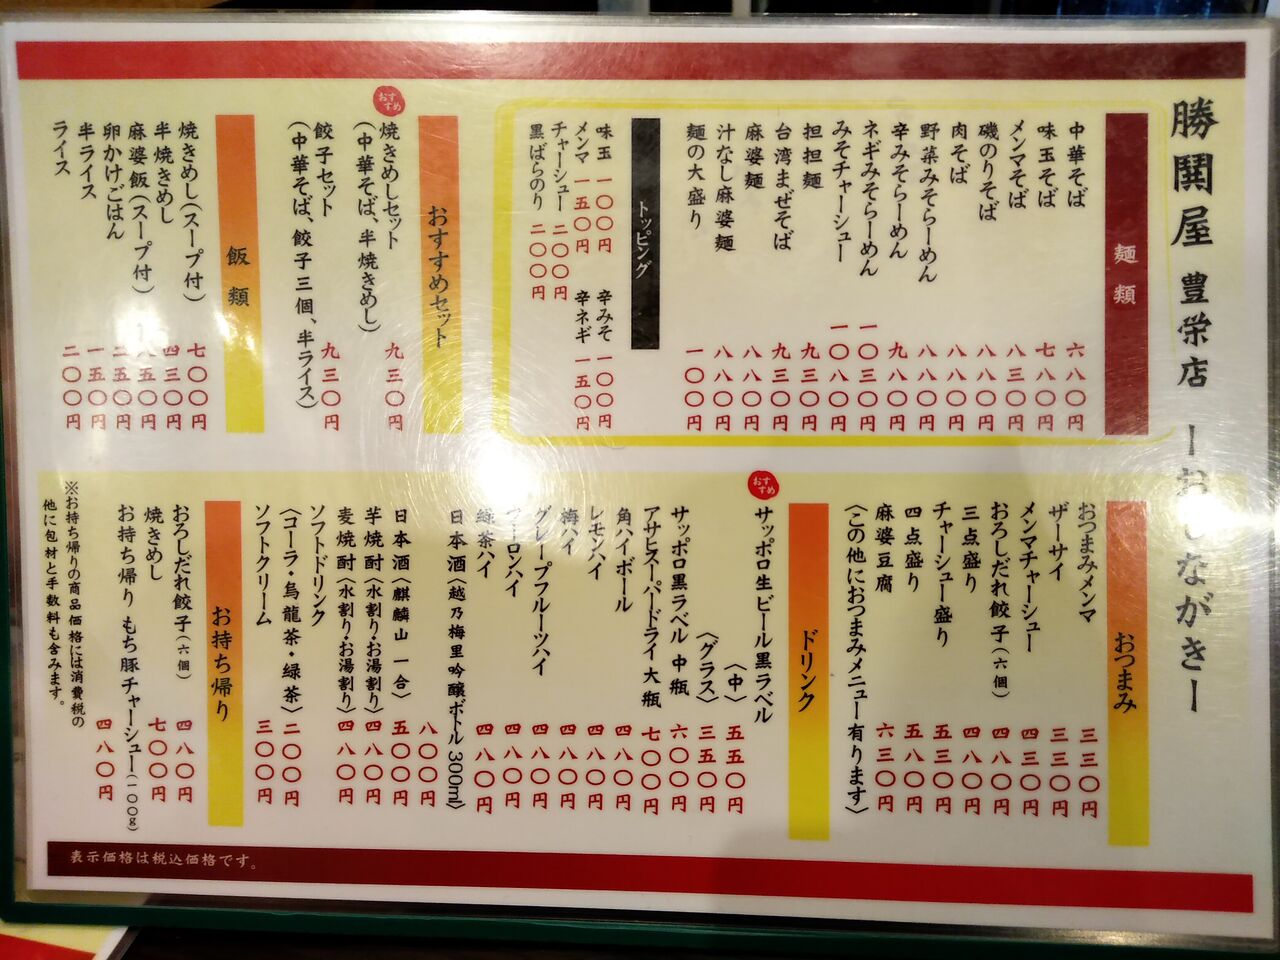 勝鬨屋 豊栄店 ーおしながきー
麺類
中華そば 六八〇円
味玉そば 七八〇円
メンマそば 八三〇円
磯のりそば 八八〇円
肉そば 八八〇円
野菜みそらーめん 八八〇円
辛みそらーめん 九八〇円
ネギみそらーめん 一〇三〇円
みそチャーシュー 一〇八〇円
担担麺 九三〇円
台湾まぜそば 九三〇円
麻婆麺 八八〇円
汁なし麻婆麺 八八〇円
麺の大盛り 一〇〇円
トッピング
味玉 一〇〇円 辛みそ 一〇〇円
メンマ 一五〇円 辛ネギ 一五〇円
チャーシュー 二〇〇円
黒ばらのり 二〇〇円
おすすめセット
おすすめ
焼きめしセット 九三〇円
(中華そば、半焼きめし)
餃子セット 九三〇円
(中華そば、餃子三個、半ライス)
飯類
焼きめし(スープ付) 七〇〇円
半焼きめし 四三〇円
麻婆飯(スープ付)
卵かけごはん
半ライス 一五〇円
ライス 二〇〇円
おつまみ
おつまみメンマ 三三〇円
ザーサイ 三三〇円
メンマチャーシュー 四三〇円
おろしだれ餃子(六個) 四八〇円
三点盛り 四八〇円
チャーシュー盛り 五三〇円
四点盛り 五八〇円
麻婆豆腐 六三〇円
〈この他におつまみメニュー有ります〉
ドリンク
おすすめ
サッポロ生ビール黒ラベル
〈中〉 五五〇円
〈グラス〉 三五〇円
サッポロ黒ラベル 中瓶 六〇〇円
アサヒスーパードライ 大瓶 七〇〇円
角ハイボール 四八〇円
レモンハイ 四八〇円
梅ハイ 四八〇円
グレープフルーツハイ 四八〇円
ウーロンハイ 四八〇円
緑茶ハイ 四八〇円
日本酒〈越乃梅里吟醸ボトル 300ml〉
八〇〇円
日本酒〈麒麟山 一合〉 五〇〇円
芋焼酎〈水割り・お湯割り〉 四八〇円
麦焼酎〈水割り・お湯割り〉 四八〇円
ソフトドリンク
〈コーラ・烏龍茶・緑茶〉 二〇〇円
ソフトクリーム 三〇〇円
お持ち帰り
おろしだれ餃子(六個) 四八〇円
焼きめし 七〇〇円
お持ち帰り もち豚チャーシュー(一〇〇g)
四八〇円
※お持ち帰りの商品価格には消費税の
他に包材と手数料も含みます。
表示価格は税込価格です。